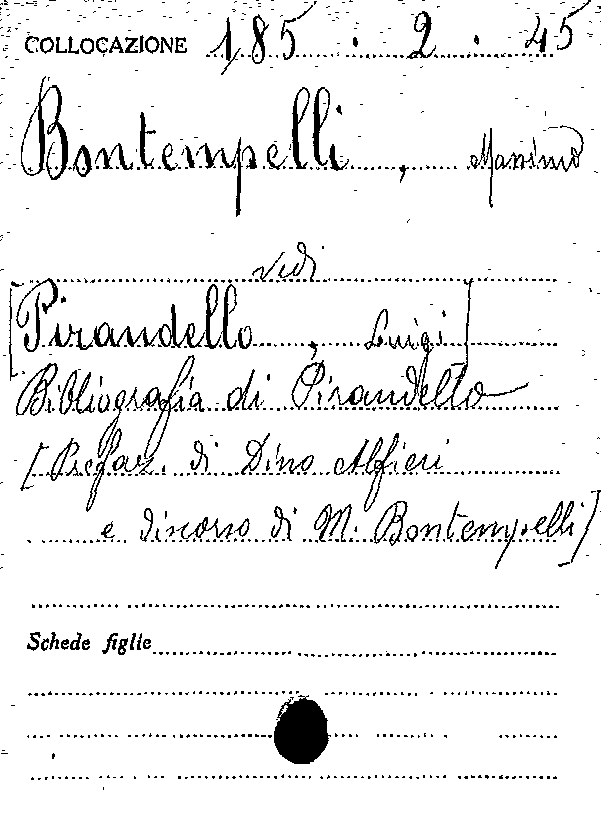 COLLOCAZIONE 185 . 2 . 45
Bontempelli , Massimo
vedi
[Pirandello , Luigi]
Bibliografia di Pirandello
[Prefaz. di Dino Alfieri
e discorso di M. Bontempelli]
Schede figlie